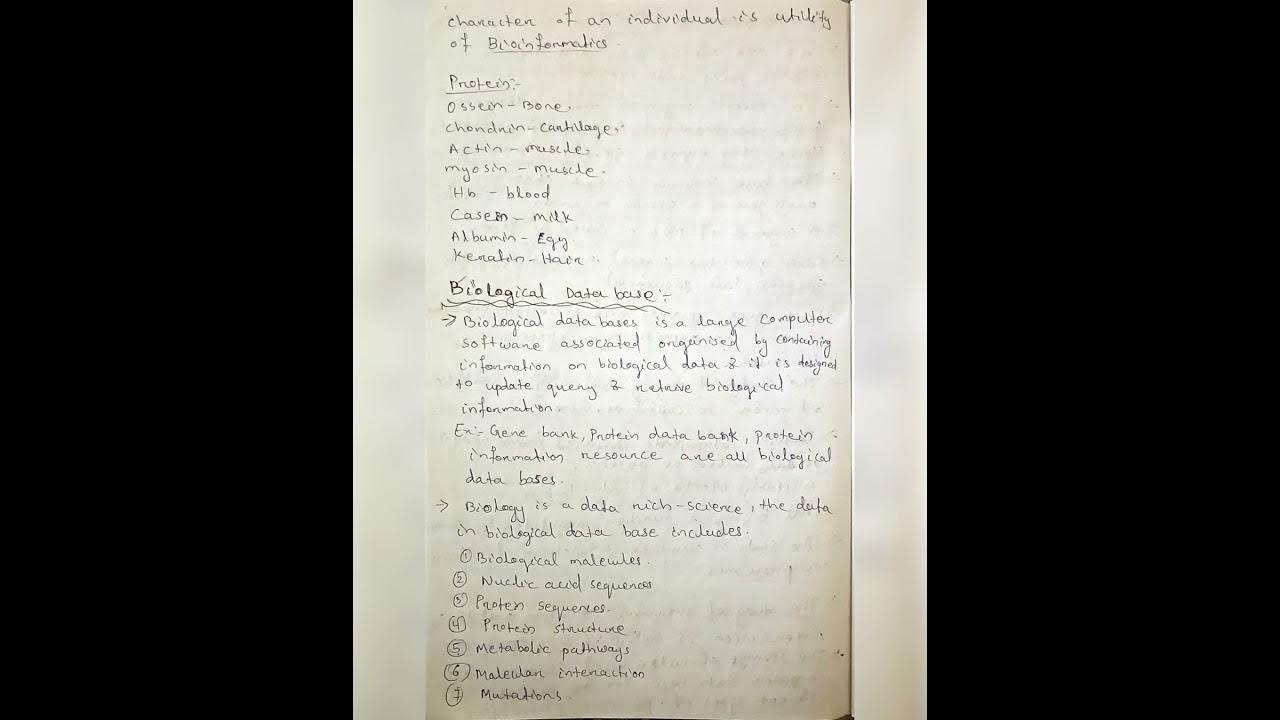 character of an individual is utility
of Bioinformatics.
Protein:-
Ossein - Bone.
Chondrin - Cartilage.
Actin - muscle.
myosin - muscle.
Hb - blood
Casein - milk
Albumin - Egg
Keratin - Hair
Biological Data base:-
→ Biological data bases is a large computer
software associated organised by containing
information on biological data & it is designed
to update query & retrive biological
information.
Ex:- Gene bank, Protein data bank, protein
information resource are all biological
data bases.
→ Biology is a data rich-science, the data
in biological data base includes.
① Biological molecules.
② Nuclic acid sequences
③ Protein sequences.
④ Protein structure.
⑤ Metabolic pathways
⑥ Molecular interaction
⑦ Mutations.